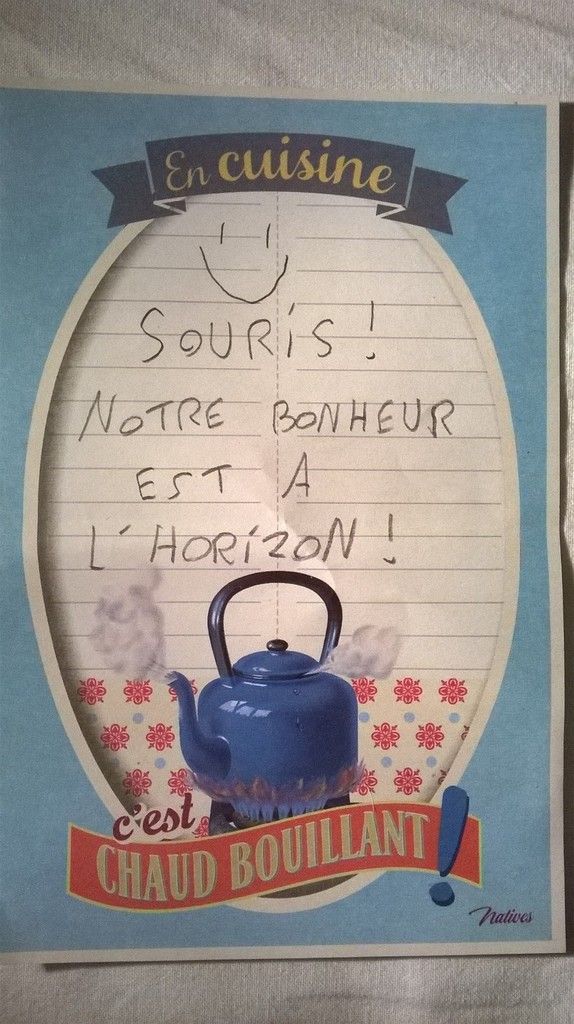 En cuisine
SOURiS !
NOTRE BONHEUR
EST A
L'HORiZON !
c'est
CHAUD BOUILLANT !
Natives